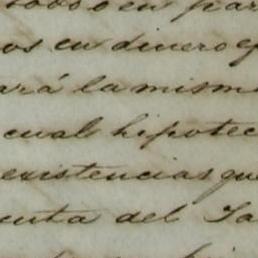 en par
os en dinero
ará la mism
cual hipotec
existencias qu
uenta del